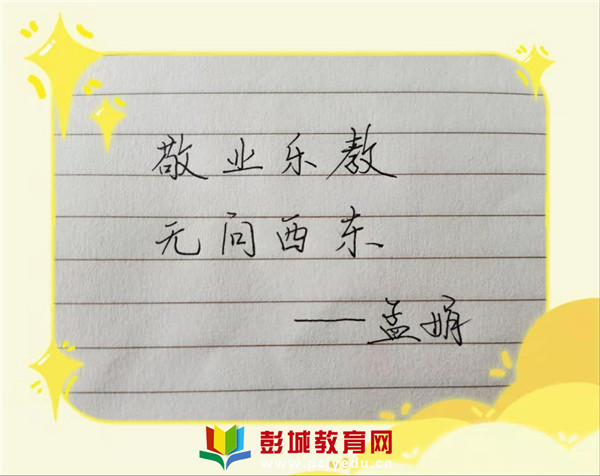 敬业乐教
无问西东
——孟娟
彭城教育网